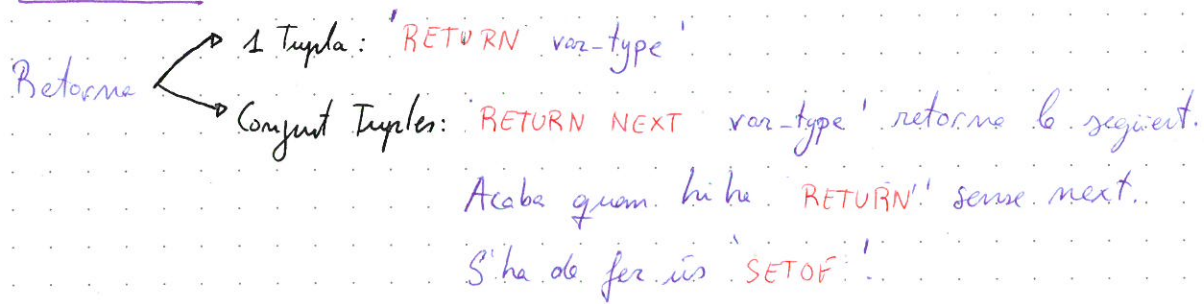 1 Tupla: 'RETURN var-type'.
Retorna
Conjunt Tuples: 'RETURN NEXT var-type' retorna la següent.
Acaba quan hi ha 'RETURN' sense next.
S'ha de fer ús 'SETOF'.